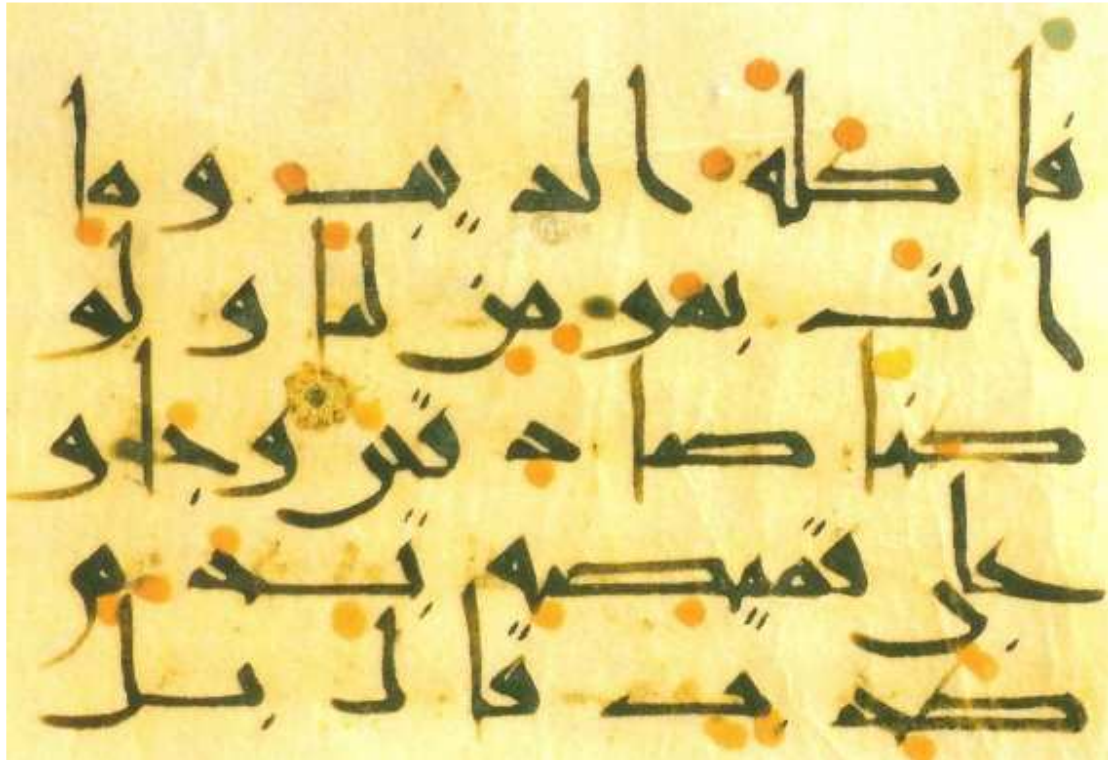 فاكله الذيب وما
ا نت بمومن لنا ولو
كنا صا د قين وجا و
علي قميصه بدم
كذ ب قا ل بل